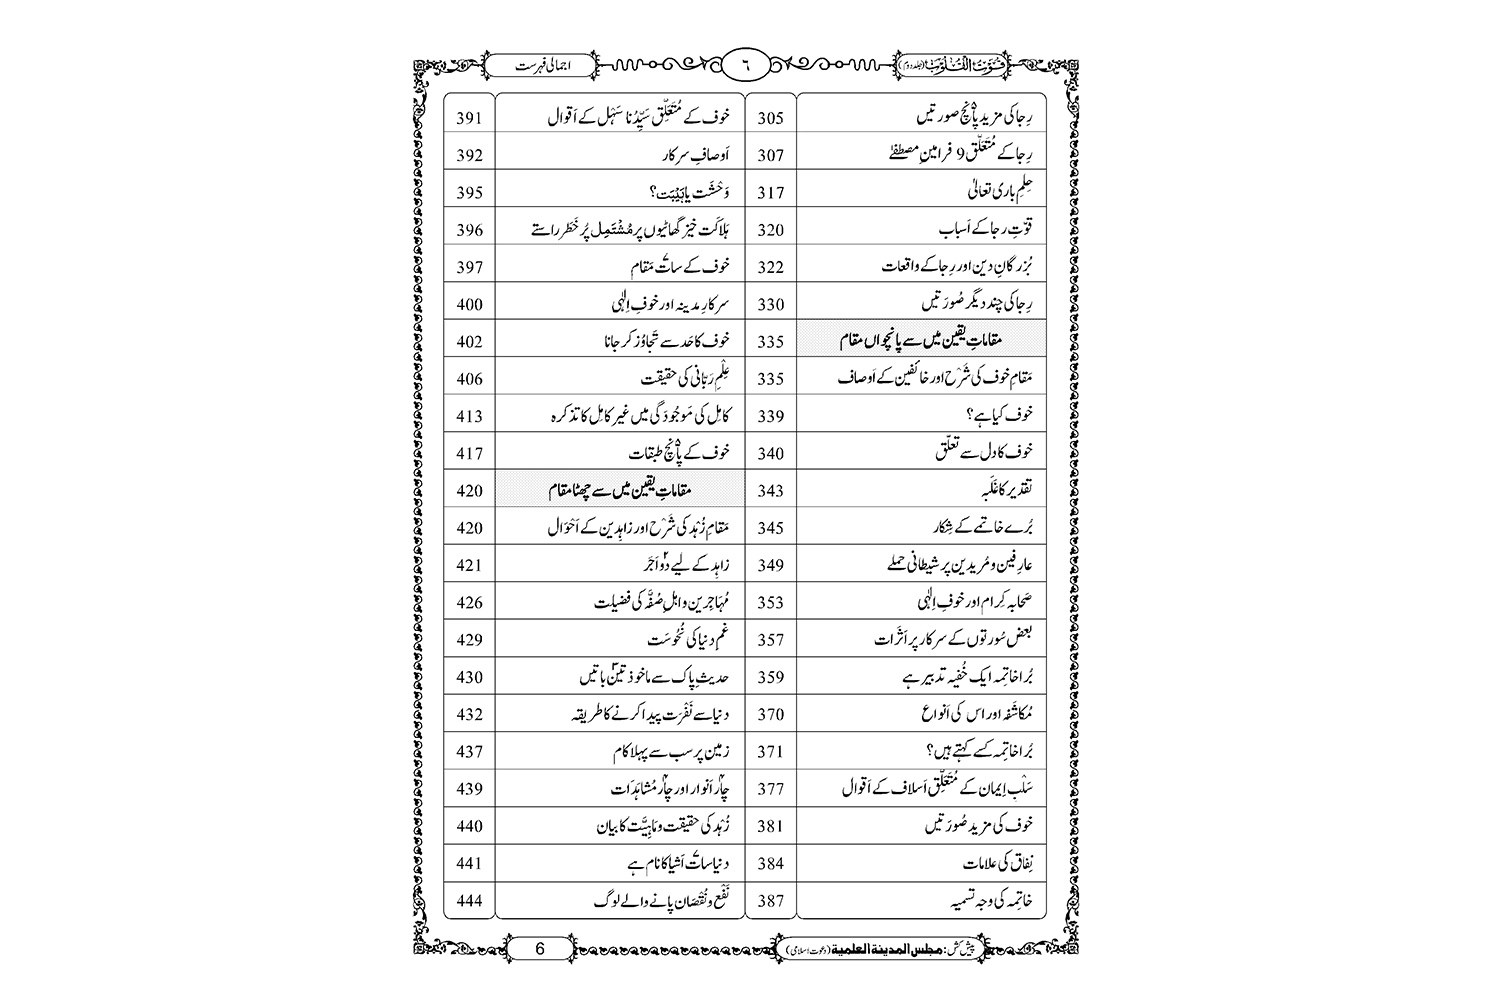 قُوتُ الْقُلُوب (جلد دوم)
٦
اجمالی فہرست
رِجا کی مزید پانچ صورتیں 305
رِجا کے مُتَعَلِّق 9 فرامینِ مصطفےٰ 307
حِلمِ باری تعالیٰ 317
قوّتِ رجا کے اَسباب 320
بُزرگانِ دین اور رِجا کے واقعات 322
رِجا کی چند دیگر صُورَتیں 330
مقاماتِ یقین میں سے پانچواں مقام 335
مَقامِ خوف کی شَرْح اور خائفین کے اَوصاف 335
خوف کیا ہے؟ 339
خوف کا دل سے تعلّق 340
تقدیر کا غَلَبہ 343
بُرے خاتمے کے شِکار 345
عارِفین و مُریدین پر شیطانی حملے 349
صحابہ کِرام اور خوفِ اِلٰہی 353
بعض سُورتوں کے سرکار پر اَثَرات 357
بُرا خاتِمہ ایک خُفیہ تدبیر ہے 359
مُکاشَفہ اور اس کی اَنواع 370
بُرا خاتِمہ کسے کہتے ہیں؟ 371
سَلْبِ اِیمان کے مُتَعَلِّق اَسلاف کے اَقوال 377
خوف کی مزید صُورَتیں 381
نِفاق کی علامات 384
خاتِمہ کی وجہ تسمیہ 387
خوف کے مُتَعَلِّق سَیِّدُنا سَہْل کے اَقوال 391
اَوصافِ سرکار 392
وَحْشَت یا ہَیْبَت؟ 395
ہَلاکَت خیز گھاٹیوں پر مُشْتَمِل پُر خَطَر راستے 396
خوف کے سات مَقام 397
سرکارِ مدینہ اور خوفِ اِلٰہی 400
خوف کا حَد سے تَجاوُز کر جانا 402
عِلْمِ رَبّانی کی حقیقت 406
کامِل کی مَوجُودَگی میں غیرِ کامِل کا تذکرہ 413
خوف کے پانچ طبقات 417
مقاماتِ یقین میں سے چھٹا مقام 420
مَقامِ زُہْد کی شَرْح اور زاہِدین کے اَحْوَال 420
زاہِد کے لیے دو اَجَر 421
مُہاجِرین و اہلِ صُفَّہ کی فضیلت 426
غمِ دنیا کی نُحُوسَت 429
حدیثِ پاک سے ماخوذ تین باتیں 430
دنیا سے نَفْرَت پیدا کرنے کا طریقہ 432
زمین پر سب سے پہلا کام 437
چار اَنوار اور چار مُشاہَدَات 439
زُہْد کی حقیقت و ماہِیَّت کا بیان 440
دنیا سات اَشیا کا نام ہے 441
نَفْع و نُقْصَان پانے والے لوگ 444
پیش کش: مجلس المدینۃ العلمیۃ (دعوتِ اسلامی)
6